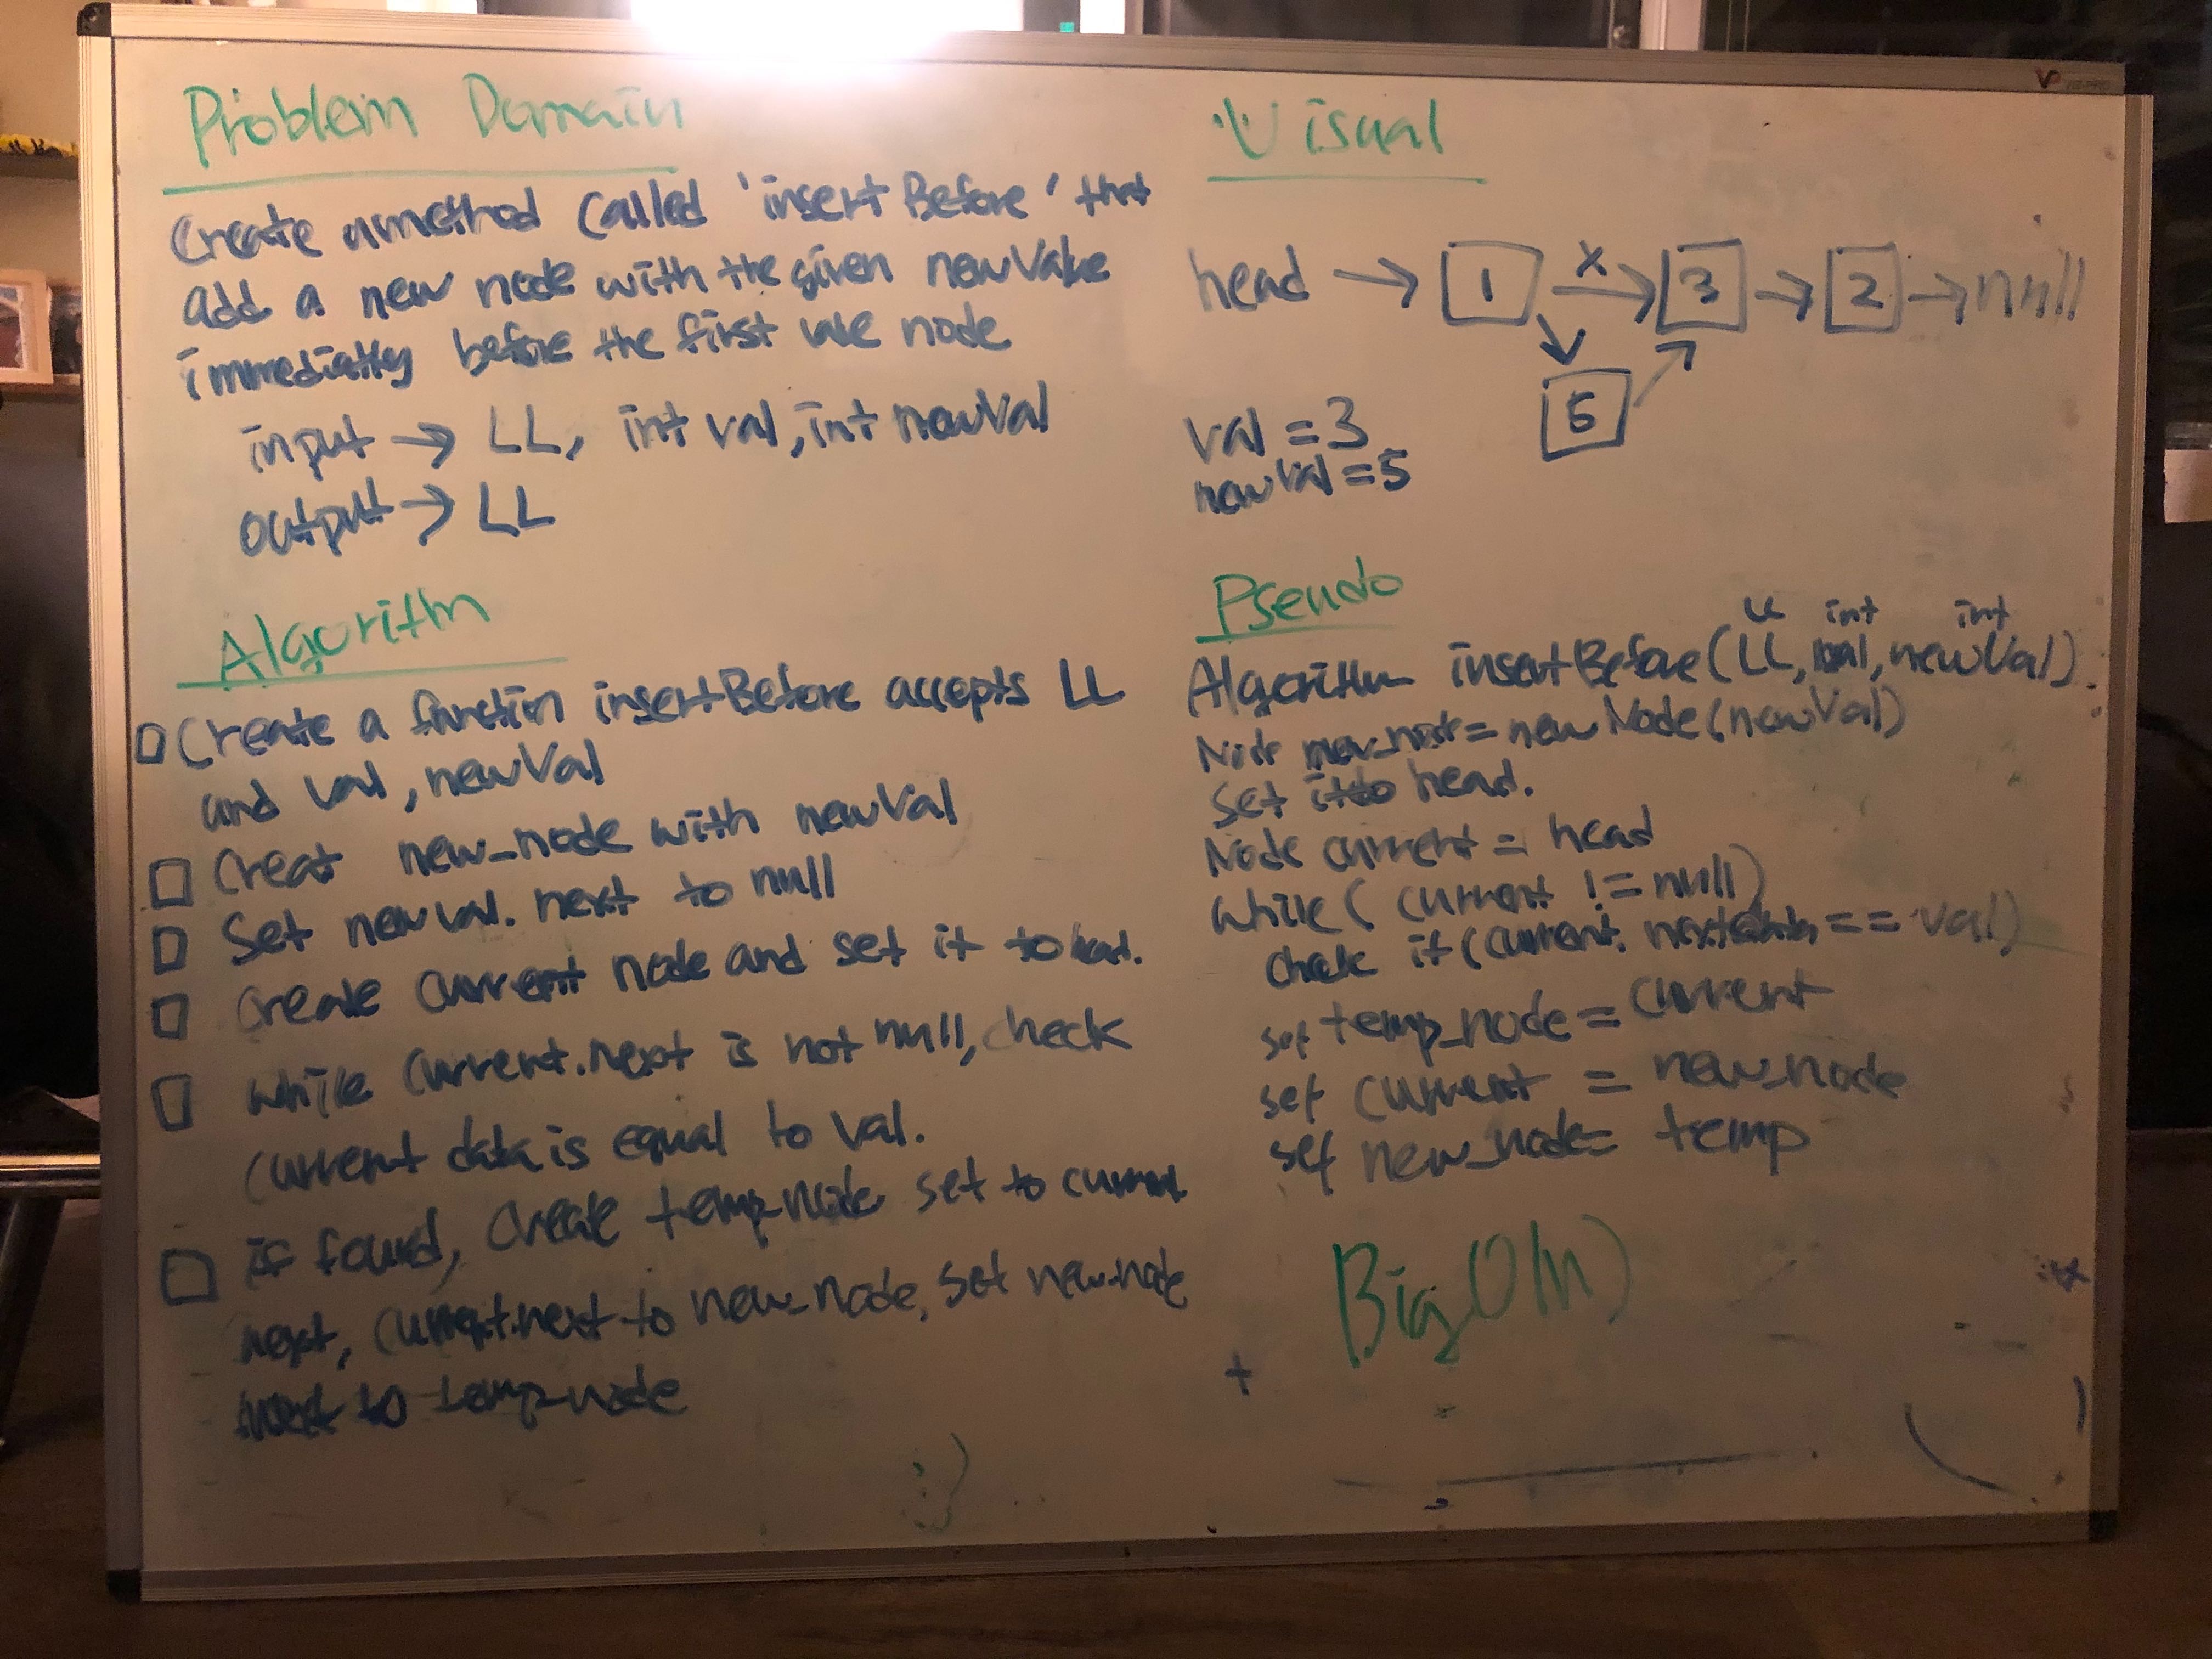 Problem Domain
Create a method called 'insertBefore' that
add a new node with the given newValue
immediatly before the first vale node
input → LL, int val, int newVal
output → LL
Algorithm
Create a function insertBefore accepts LL
and val, newVal
Creat new_node with newVal
Set newval. next to null
Create current node and set it to head.
while current.next is not null, check
current data is equal to val.
if found, create temp_node set to current
next, current.next to new_node, set new_node
next to temp_node
Visual
head → 1 x → 3 → 2 → null
5
val = 3
newVal = 5
Pseudo
LL int int
Algorithm insertBefore(LL, val, newVal)
Node new_node = new Node(newVal)
Set it to head.
Node current = head
while( current != null)
check if (current. next == val)
set temp_node = current
set current = new_node
set new_node = temp
Big O(n)